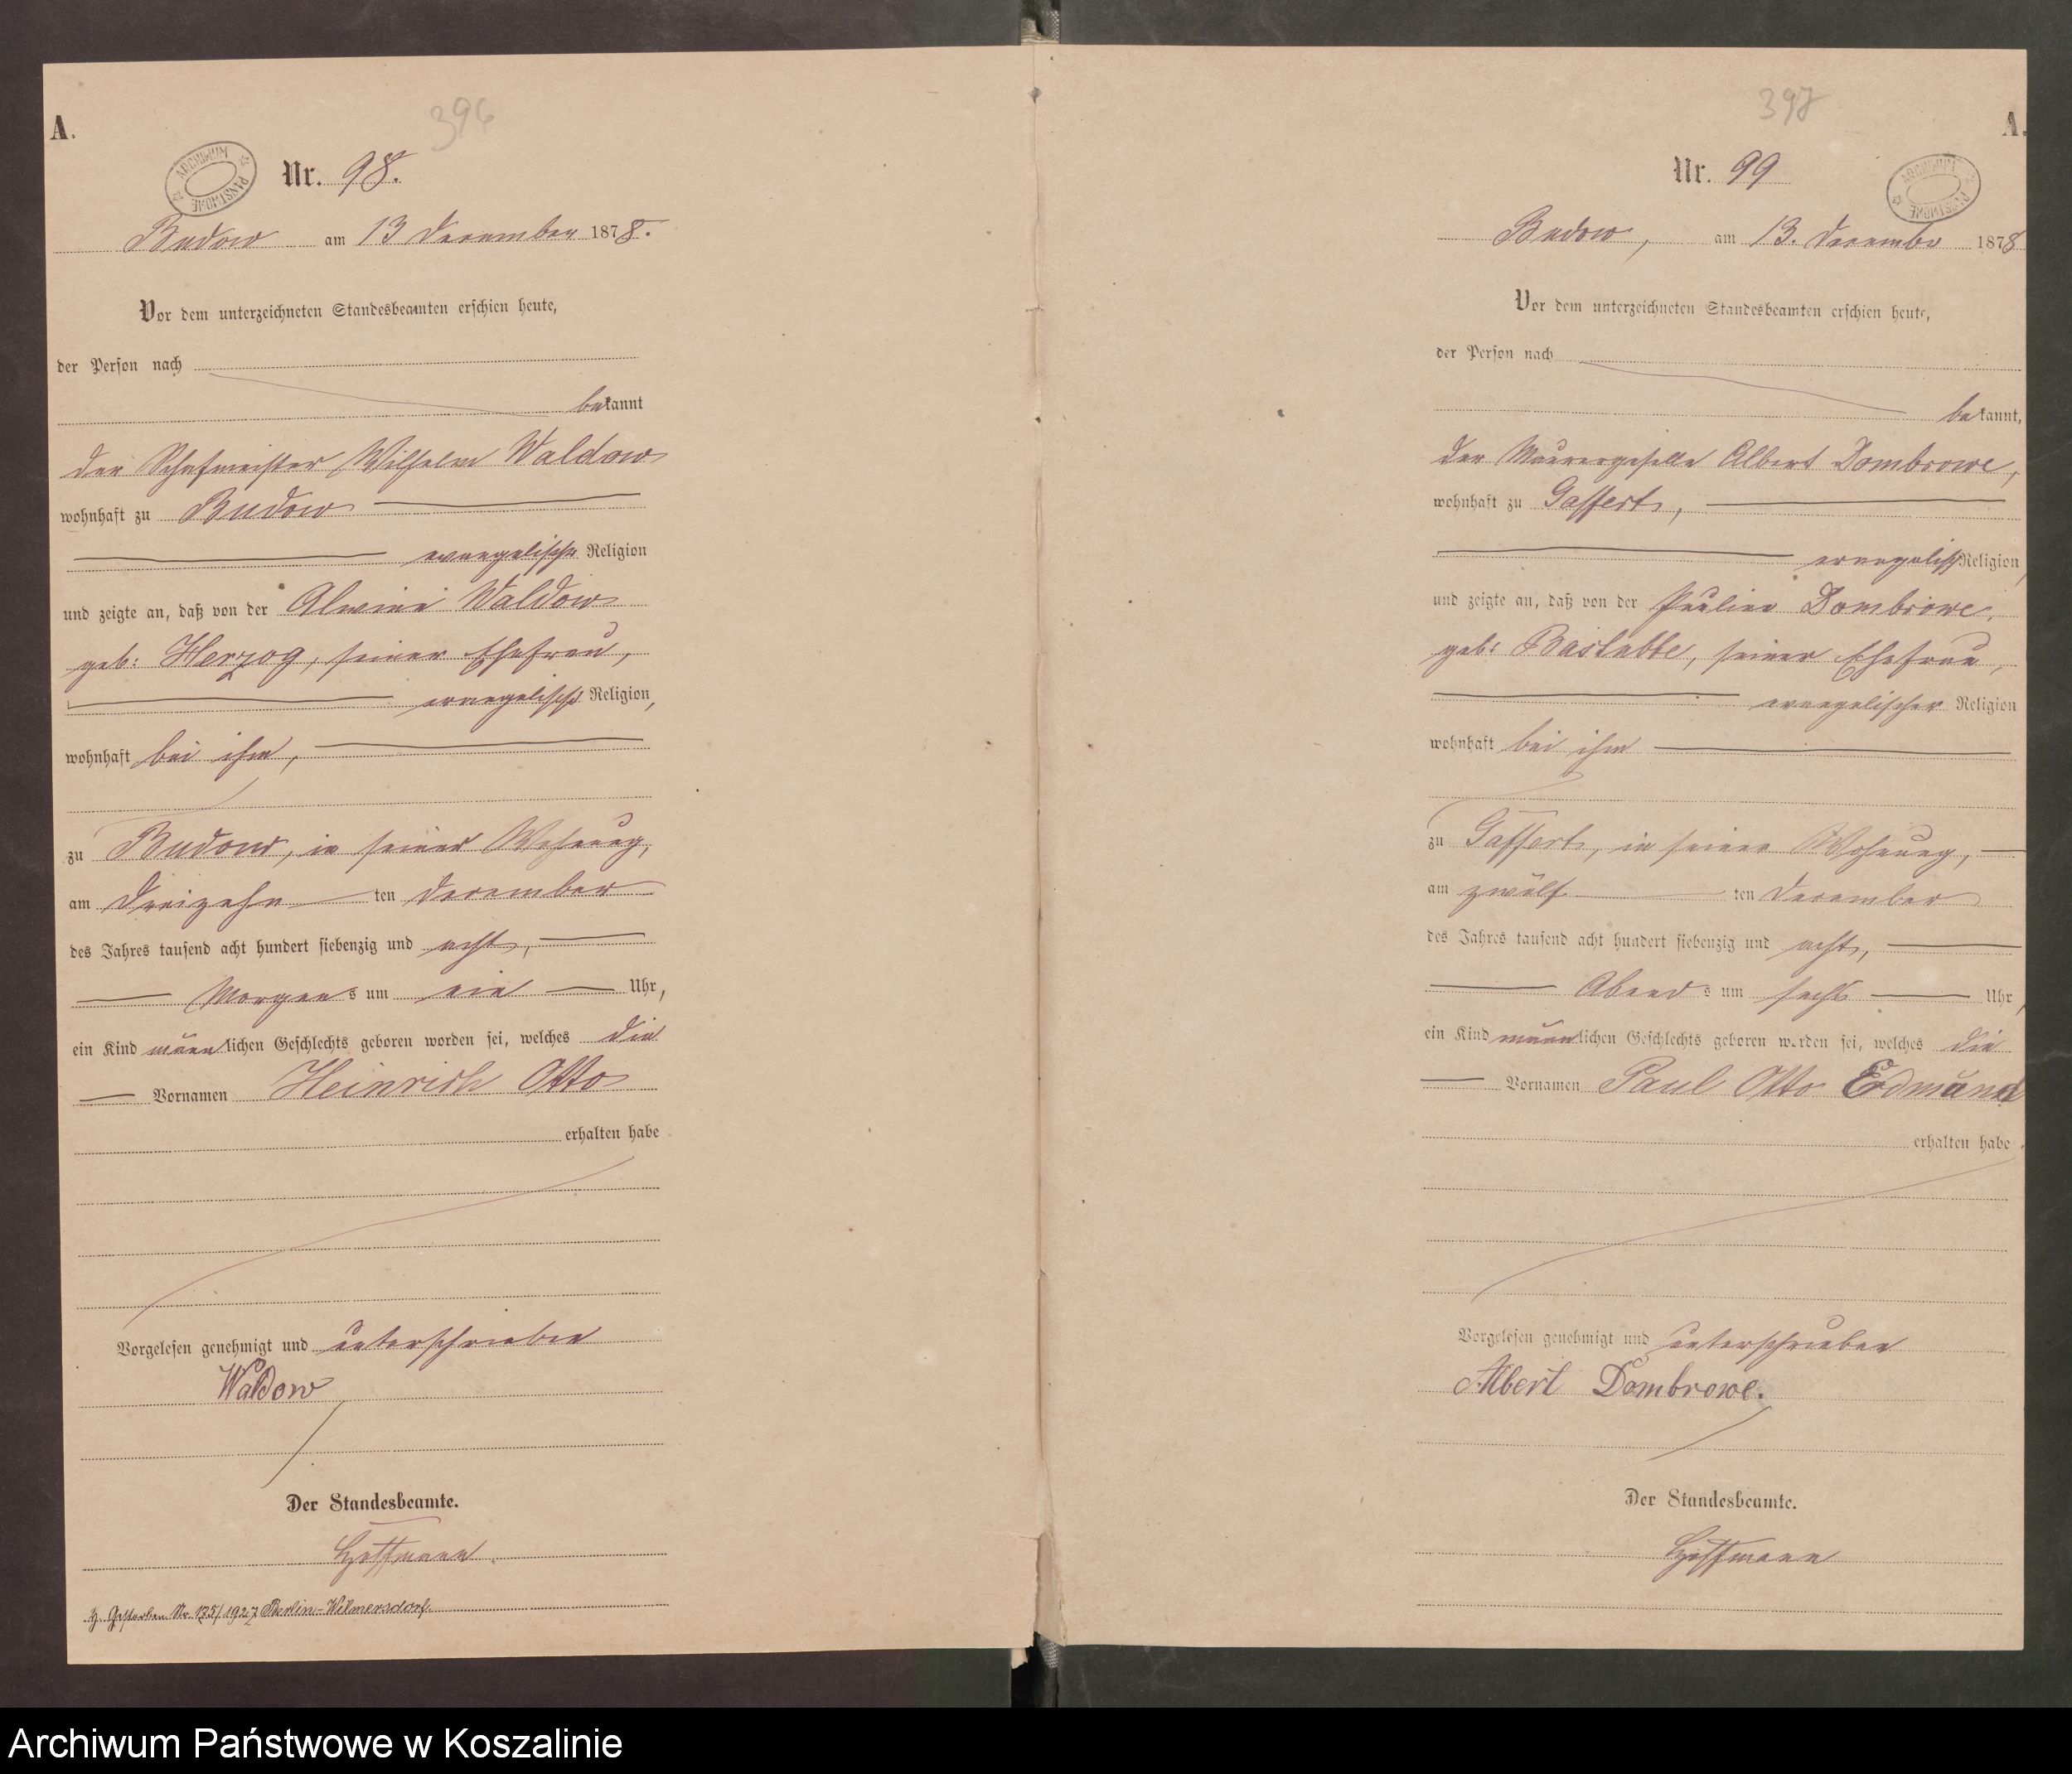 396
A.
ARCHIWUM PAŃSTWOWE
Nr. 98.
Budow am 13 December 1878.
Vor dem unterzeichneten Standesbeamten erschien heute,
der Person nach
bekannt
der Schafmeister Wilhelm Waldow
wohnhaft zu Budow
evangelischer Religion
und zeigte an, daß von der Alwine Waldow
geb: Herzog, seiner Ehefrau,
evangelischer Religion,
wohnhaft bei ihm,
zu Budow, in seiner Wohnung,
am dreizehn ten December
des Jahres tausend acht hundert siebenzig und acht,
Morgens um ein Uhr,
ein Kind männlichen Geschlechts geboren worden sei, welches die
Vornamen Heinrich Otto
erhalten habe
Vorgelesen genehmigt und unterschrieben
Waldow
Der Standesbeamte.
Hoffmann
Gestorben Nr. 175/1927 Berlin-Wilmersdorf.
397
A.
ARCHIWUM PAŃSTWOWE
Nr. 99
Budow, am 13. December 1878
Vor dem unterzeichneten Standesbeamten erschien heute,
der Person nach
bekannt,
der Maurergeselle Albert Dombrowe,
wohnhaft zu Gaffert,
evangelisch Religion,
und zeigte an, daß von der Pauline Dombrowe,
geb: Bastubbe, seiner Ehefrau,
evangelischer Religion
wohnhaft bei ihm
zu Gaffert, in seiner Wohnung,
am zwölf ten December
des Jahres tausend acht hundert siebenzig und acht,
Abends um sechs Uhr,
ein Kind männlichen Geschlechts geboren worden sei, welches die
Vornamen Paul Otto Erdmann
erhalten habe.
Vorgelesen genehmigt und unterschrieben
Albert Dombrowe.
Der Standesbeamte.
Hoffmann
Archiwum Państwowe w Koszalinie